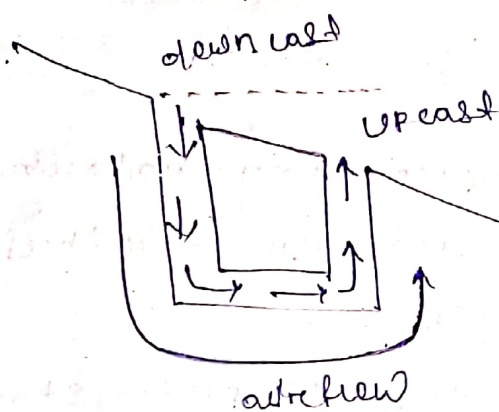 down cast
up cast
air flow